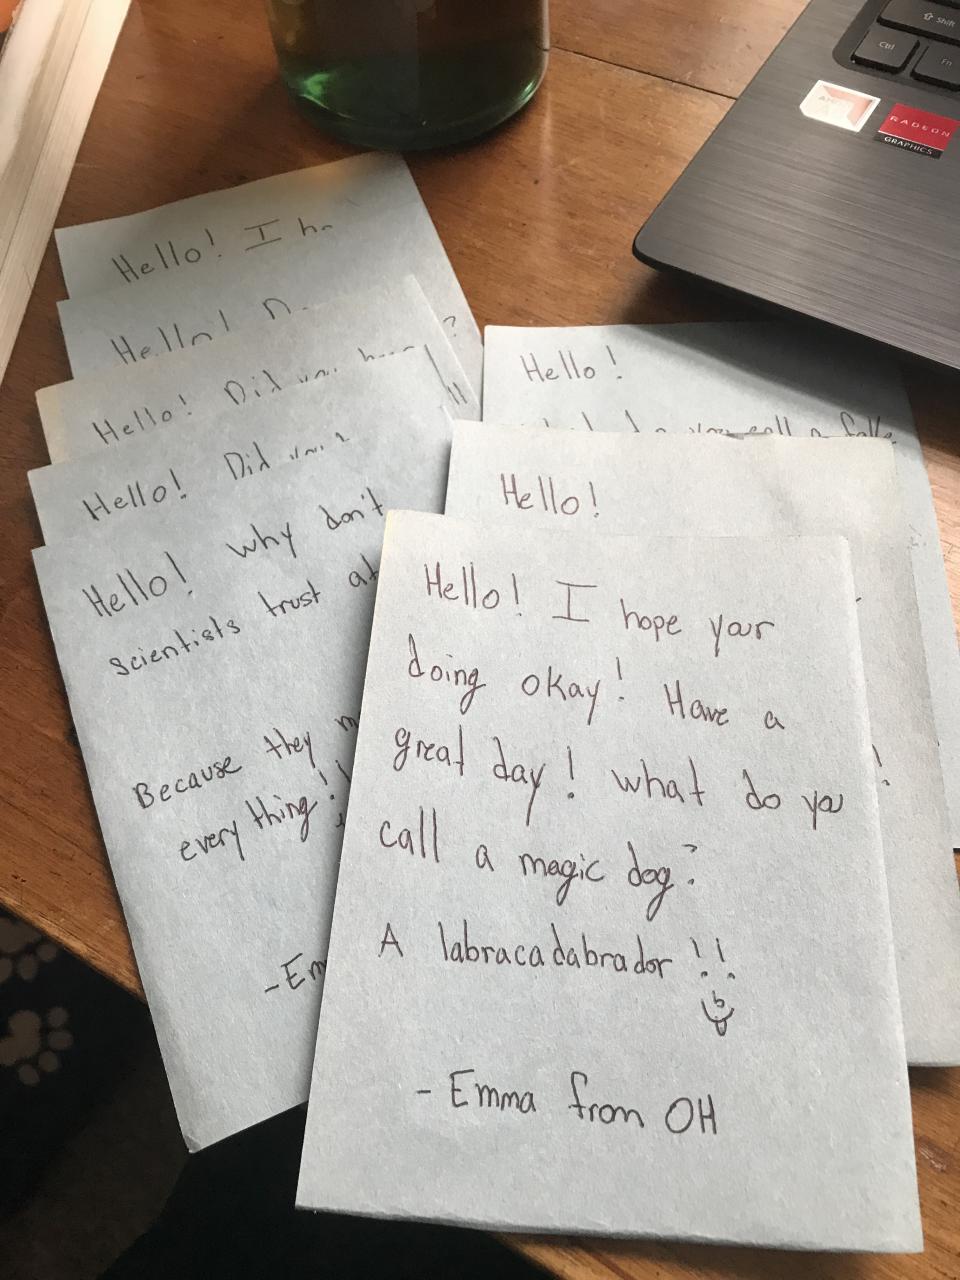 Shift
Ctrl
Fn
RADEON
GRAPHICS
Hello! I
Hello!
?
Hello! Did
!!
Hello! Did
Hello! why don't
scientists trust
Because they
everything!!
Hello!
call a
Hello!
!
Hello! I hope your
doing okay! Have a
great day! what do you
call a magic dog?
A labracadabrador!!
- Emma from OH